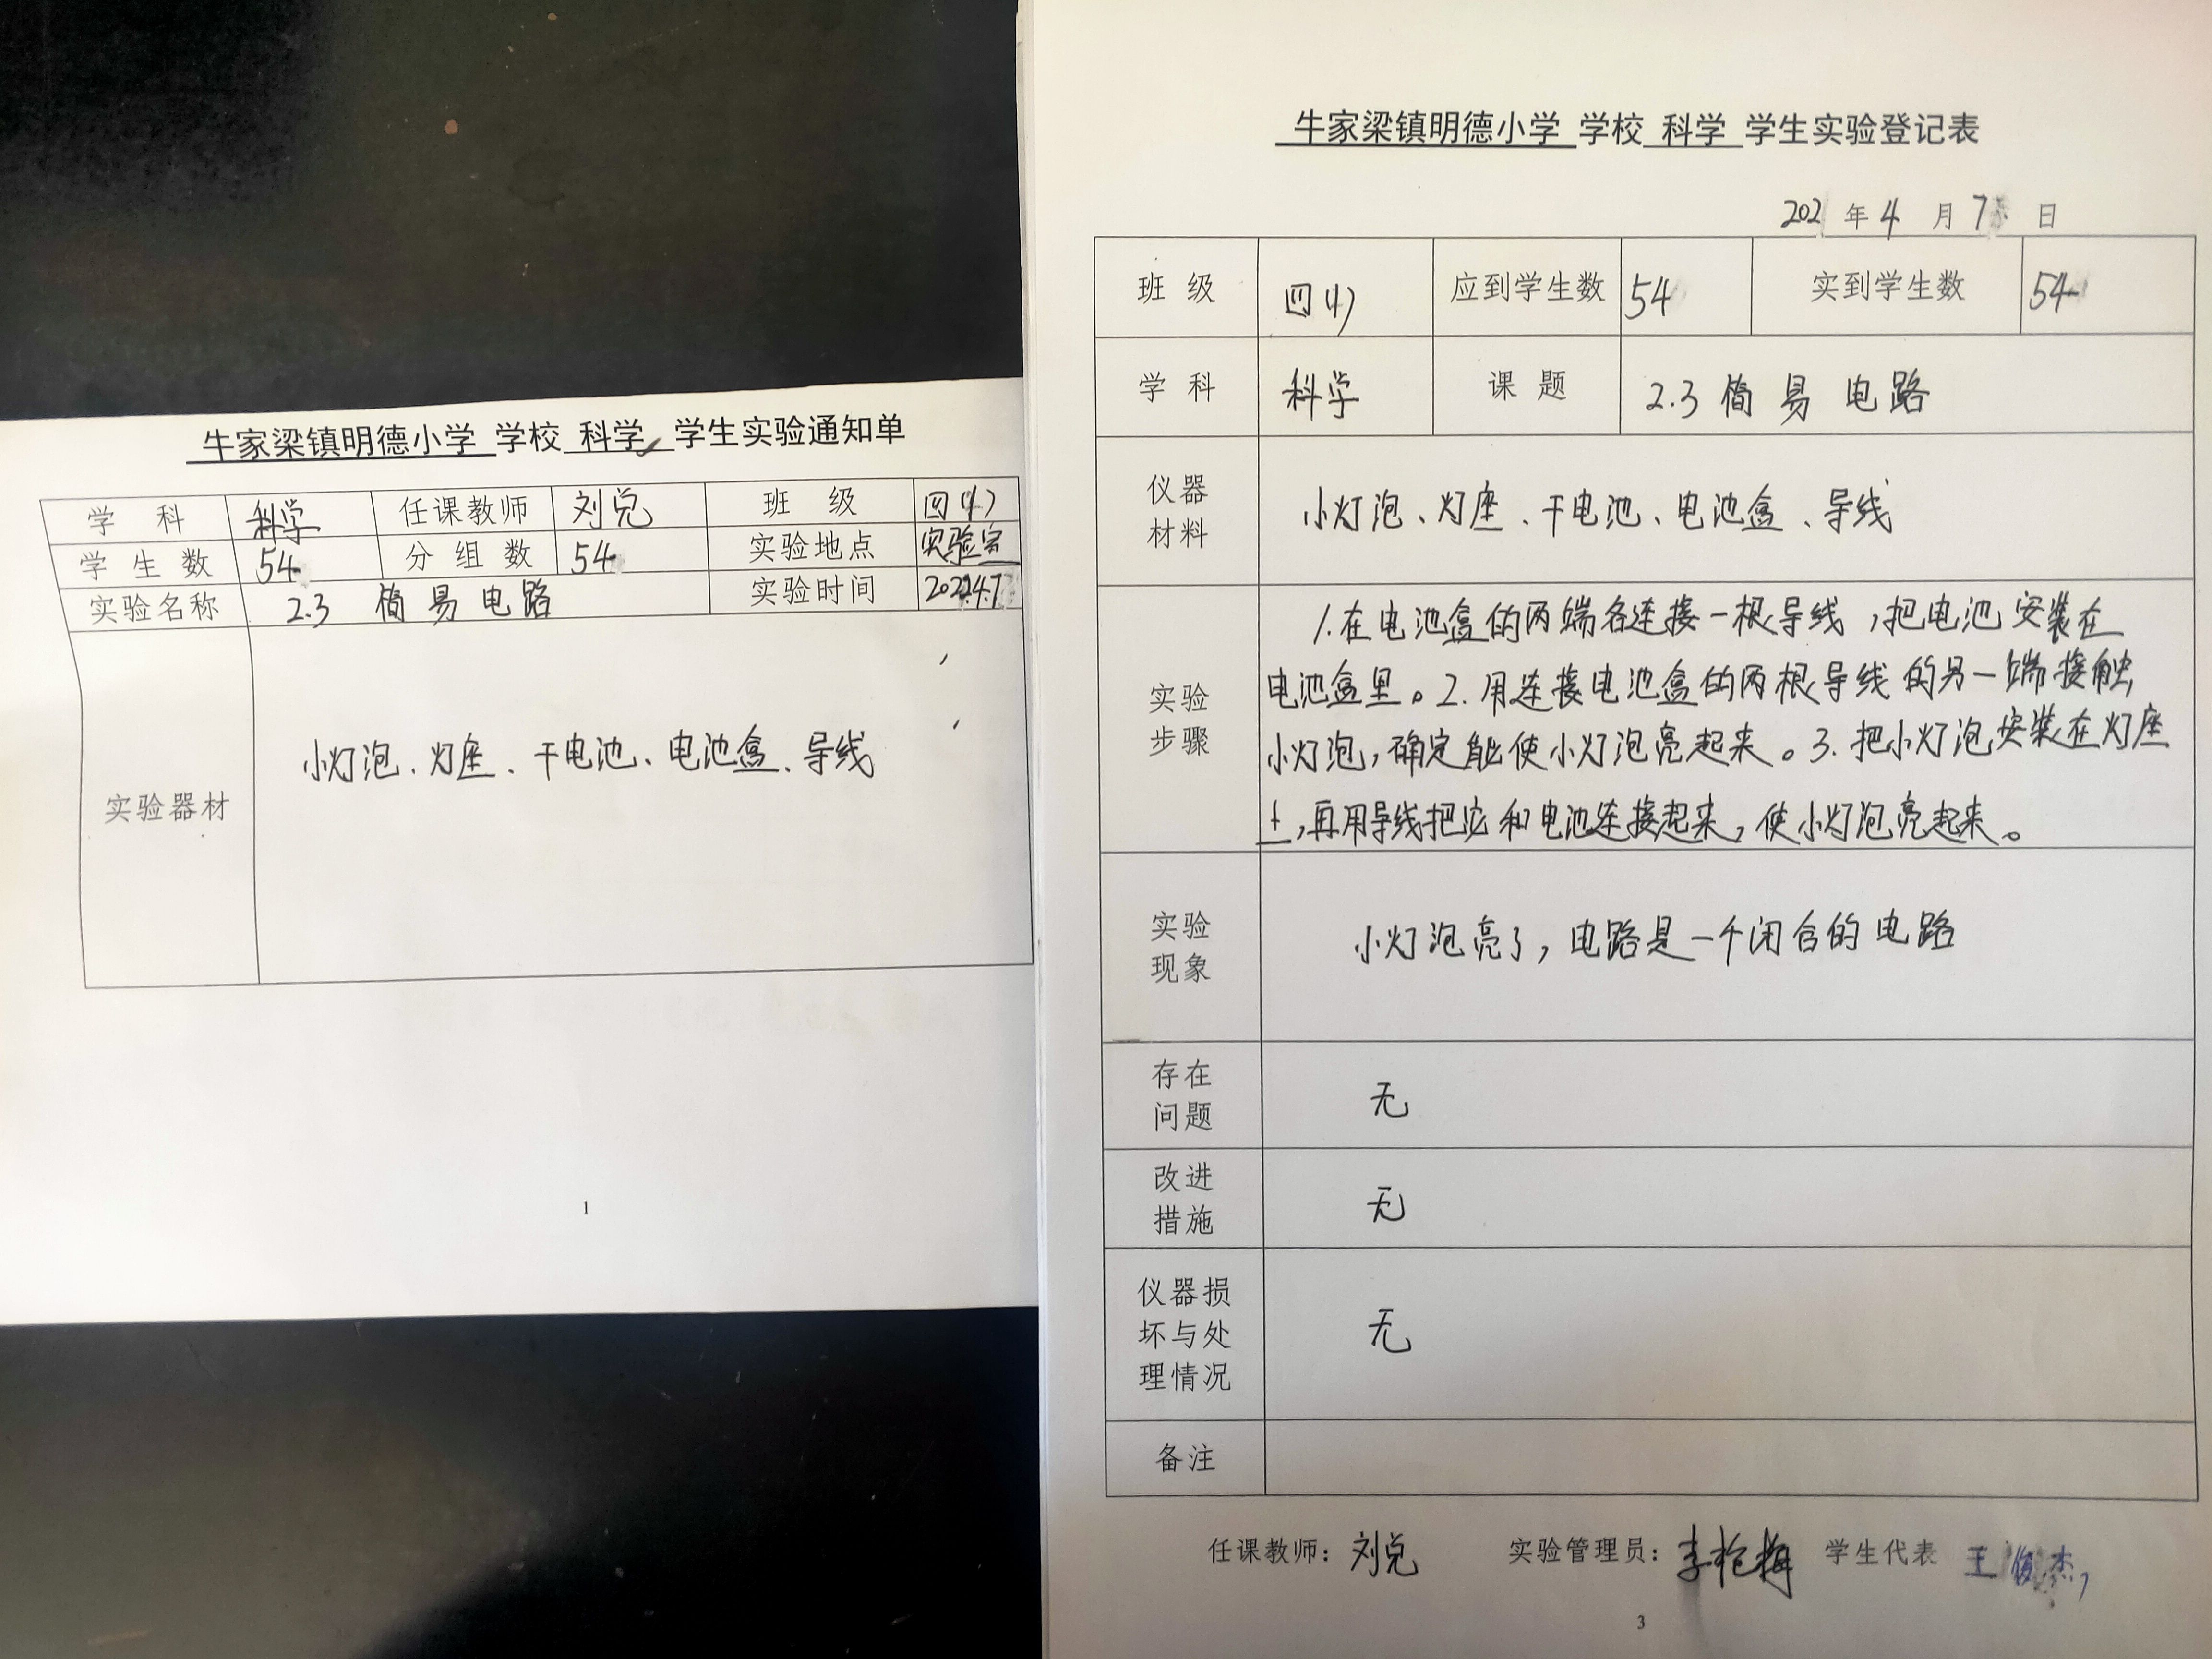 牛家梁镇明德小学 学校 科学 学生实验通知单
学 科 科学 任课教师 刘兑 班 级 四(1)
学 生 数 54 分 组 数 54 实验地点 实验室
实验名称 2.3 简易电路 实验时间
实验器材 小灯泡、灯座、干电池、电池盒、导线
1
牛家梁镇明德小学 学校 科学 学生实验登记表
年 4 月 7 日
班 级 四(1) 应到学生数 54 实到学生数 54
学 科 科学 课 题 2.3 简易电路
仪器
材料
小灯泡、灯座、干电池、电池盒、导线
实验
步骤
1.在电池盒的两端各连接一根导线,把电池安装在
电池盒里。2.用连接电池盒的两根导线的另一端接触
小灯泡,确定能使小灯泡亮起来。3.把小灯泡安装在灯座
上,再用导线把它和电池连接起来,使小灯泡亮起来。
实验
现象
小灯泡亮了,电路是一个闭合的电路
存在
问题
无
改进
措施
无
仪器损
坏与处
理情况
无
备注
任课教师:刘兑 实验管理员: 学生代表
3